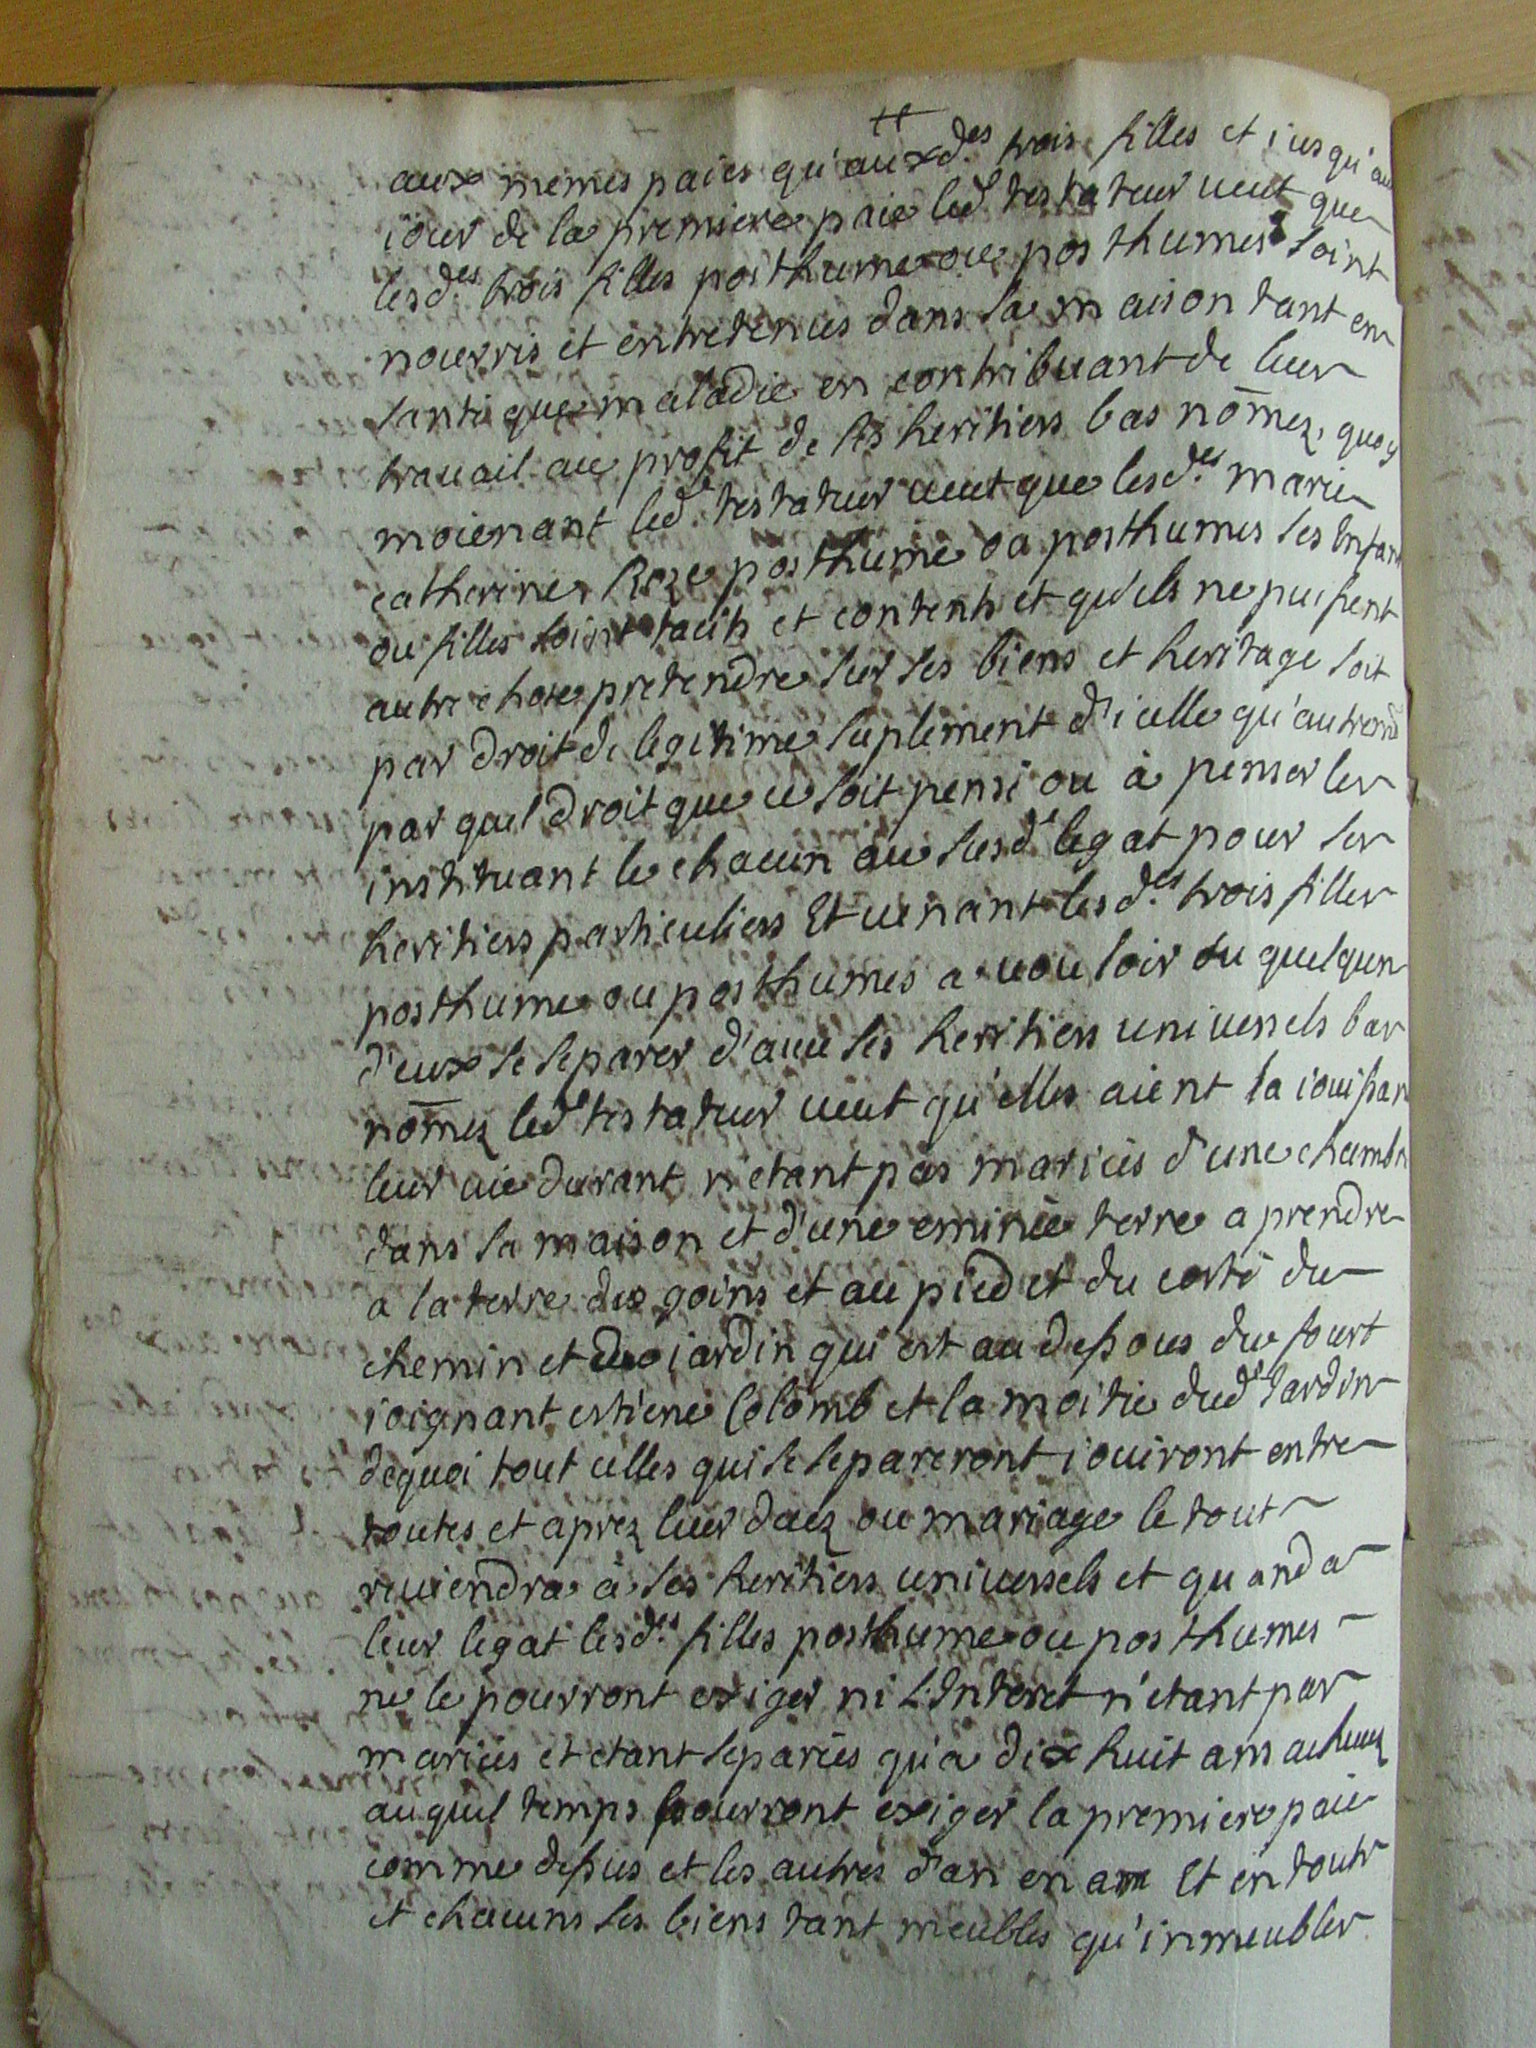 aux memes paies qu'auxd.es trois filles et iusqu'au
iour de la premiere paie led.t testateur ueut que
lesd.es trois filles posthume ou posthumes soint
nourris et entretenus dans sa maison tant en
santé que maladie en contribuant de leur
trauail au profit de ses heritiers bas nōmez, quoy
moienant led.t testateur ueut que lesd.es marie
catherine, Roze posthume ou posthumes ses Enfans
ou filles soint tacits et contents et qu'ils ne puissent
autre chose pretendre sur ses biens et heritage soit
par droit de legitime suplement d'icelle qu'autremt
par quel droit que ce soit pensé ou à penser les
instituant le chacun au susd.t legat pour ses
heritiers particuliers Et uenant lesd.es trois filles
posthume ou posthumes a uouloir ou quelqun
d'eux se separer d'auec ses heritiers uniuersels bas
nōmez led.t testateur ueut qu'elles aient la iouissan
leur uie durant n'etant pas mariées d'une chambre
dans sa maison et d'une eminée terre a prendre
a la terre des goins et au pied et du costé du
chemin et du iardin qui est au dessous du fourt
ioignant estiene Colomb et la moitié dud.t Iardin
dequoi tout celles qui se separeront iouiront entre
toutes et aprez leur decez ou mariage le tout
reuiendra à ses heritiers uniuersels et quand a
leur legat lesd.es filles posthume ou posthumes
ne le pourront exiger ni L'Interet n'etant pas
mariées et etant separées qu'a dix huit ans acheuez
auquel temps pourront exiger la premiere paie
comme dessus et les autres d'an en an Et en toutz
et chacuns ses biens tant meubles qu'inmeubles